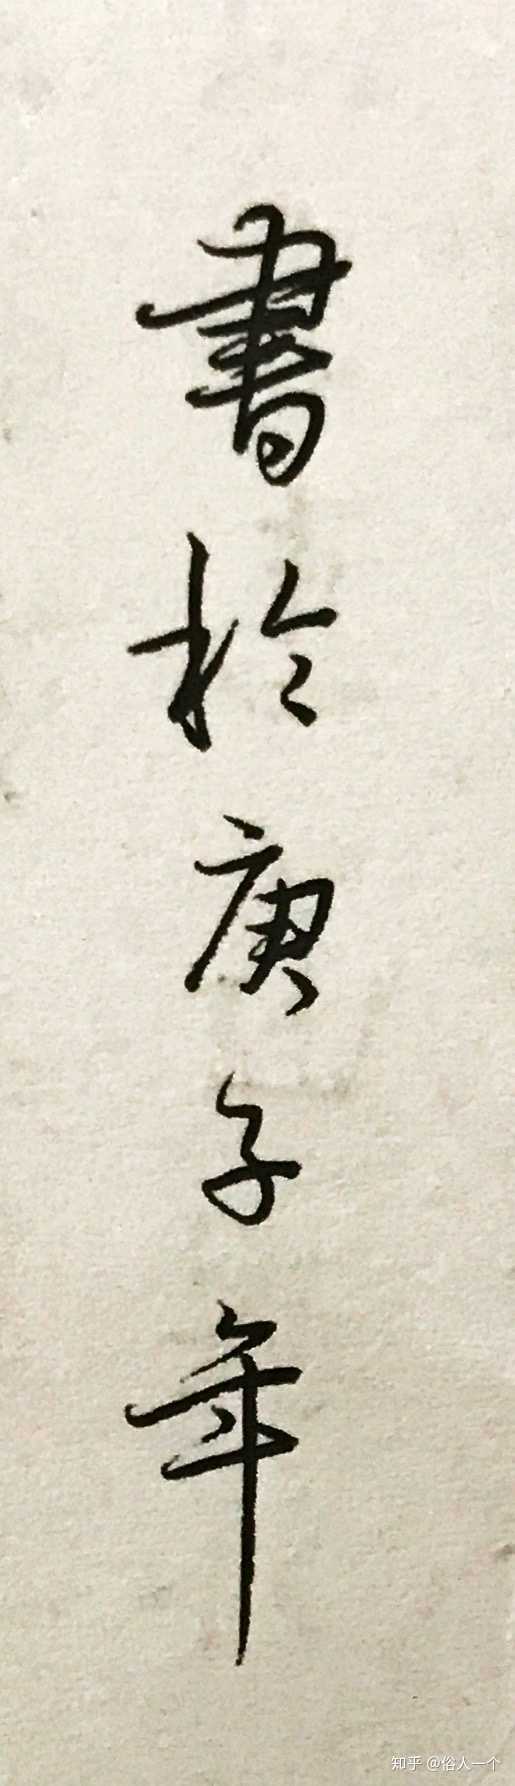 書於庚子年
知乎 @俗人一个